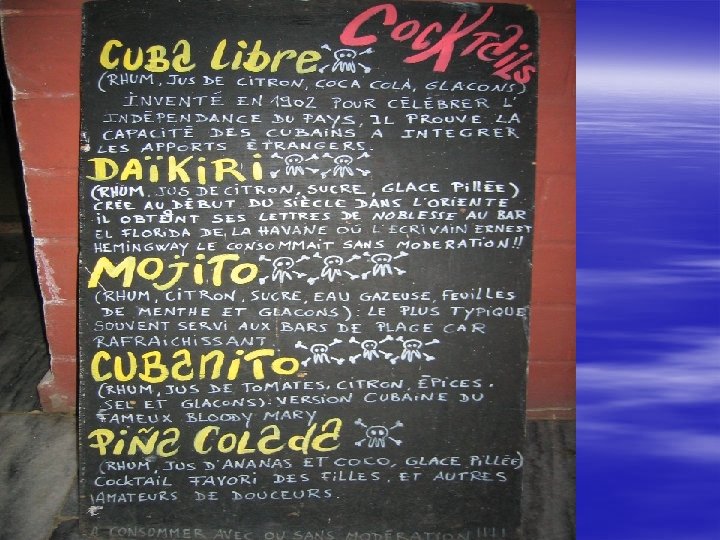 COCKTAILS
CUBA LiBRE
(RHUM, JUS DE CITRON, COCA COLA, GLACONS)
INVENTÉ EN 1902 POUR CÉLÉBRER L'
INDÉPENDANCE DU PAYS, IL PROUVE LA
CAPACITÉ DES CUBAINS A INTEGRER
LES APPORTS ÉTRANGERS.
DAÏKIRI
(RHUM, JUS DE CITRON, SUCRE, GLACE PILLÉE)
CRÉE AU DÉBUT DU SIÈCLE DANS L'ORIENTE
IL OBTENT SES LETTRES DE NOBLESSE AU BAR
EL FLORIDA DE LA HAVANE OÙ L'ECRIVAIN ERNEST
HEMINGWAY LE CONSOMMAIT SANS MODERATION!!
MOJITO
(RHUM, CITRON, SUCRE, EAU GAZEUSE, FEUILLES
DE MENTHE ET GLACONS): LE PLUS TYPIQUE
SOUVENT SERVI AUX BARS DE PLAGE CAR
RAFRAICHISSANT
CUBANITO
(RHUM, JUS DE TOMATES, CITRON, ÉPICES,
SEL ET GLACONS): VERSION CUBAINE DU
FAMEUX BLOODY MARY
PIÑA COLADA
(RHUM, JUS D'ANANAS ET COCO, GLACE PILLÉE)
COCKTAIL FAVORI DES FILLES, ET AUTRES
AMATEURS DE DOUCEURS.
A CONSOMMER AVEC OU SANS MODÉRATION!!!!